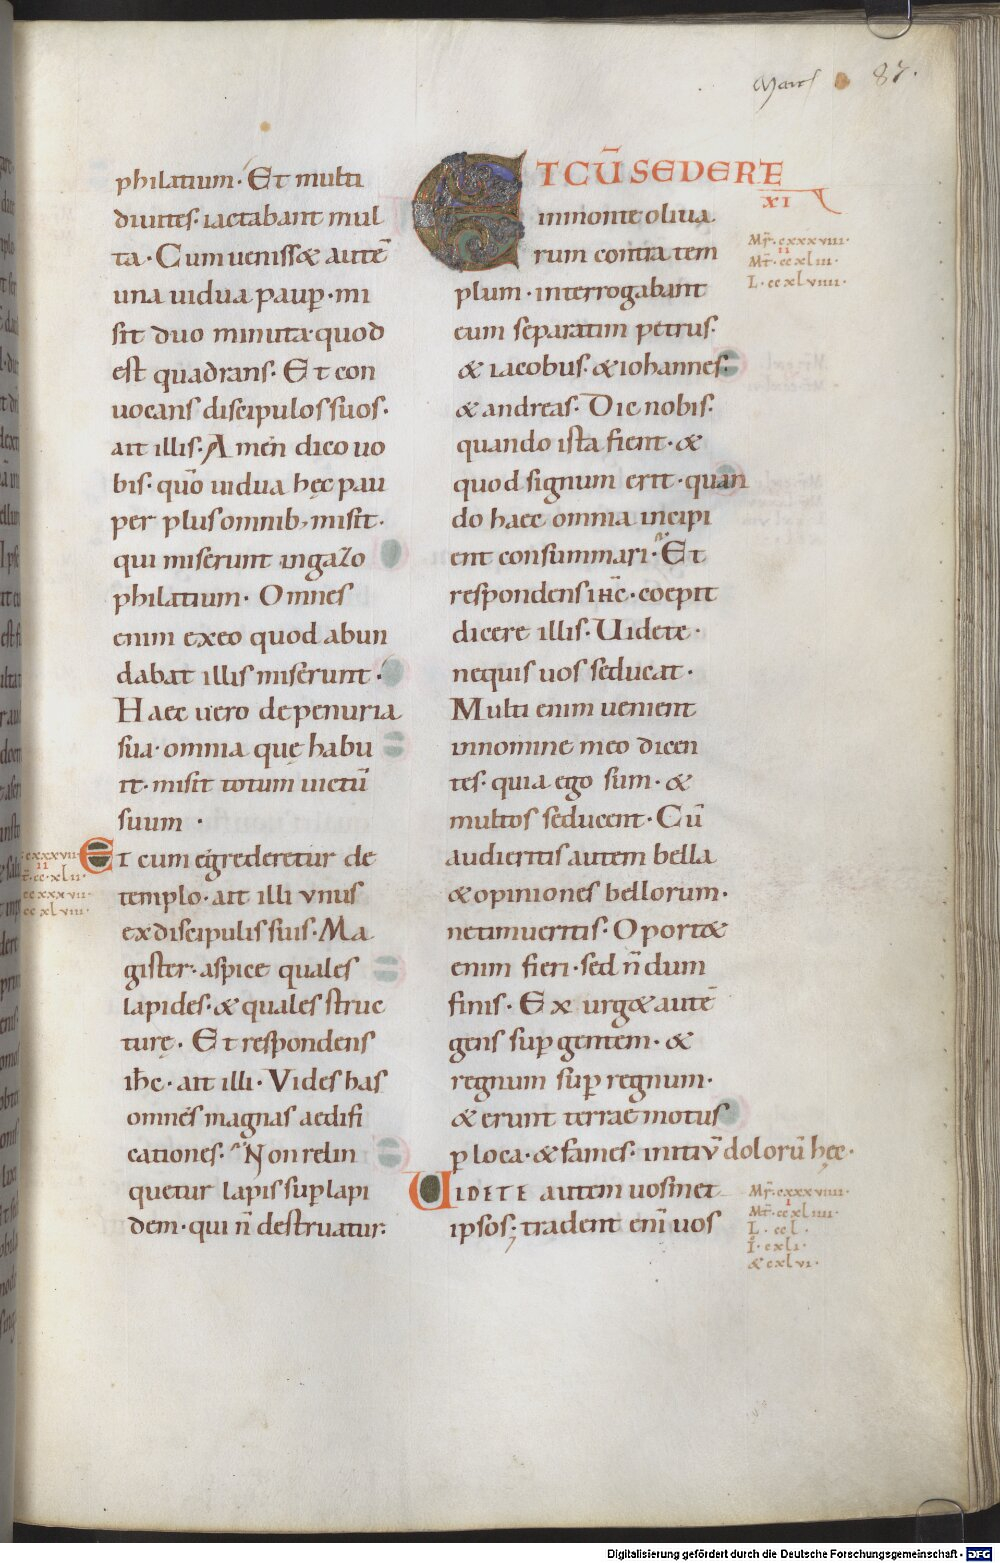 Marc 87.
philatium· Et multi
diuites· iactabant mul
ta· Cum uenisset autē
una uidua paup̄· mi
sit duo minuta· quod
est quadrans· Et con
uocans discipulos suos·
ait illis· Amen dico uo
bis· qūo uidua hęc pau
per plus omnib; misit·
qui miserunt in gazo
philatium· Omnes
enim ex eo quod abun
dabat illis miserunt·
Haec uero de penuria
sua· omnia quę habu
it· misit totum uictū
suum ·
Et cum egrederetur de
templo· ait illi vnus
ex discipulis suis· Ma
gister· aspice quales
lapides· & quales struc
turę· Et respondens
ihc̄· ait illi· Vides has
omnes magnas aedifi
cationes· Non relin
quetur lapis sup̄ lapi
dem· qui n̄ destruatur·
cxxxvii
ii
cc·xlii·
ccxxxvii·
ccxlviii·
ET CŪ SEDERET
XI
in monte oliua
rum contra tem
plum· interrogabant
eum separatim petrus·
& iacobus· & iohannes·
& andreas· Dic nobis·
quando ista fient· &
quod signum erit· quan
do haec omnia incipi
ent consummari· Et
respondens ihc̄· coepit
dicere illis· Uidete·
nequis uos seducat·
Multi enim uenient
in nomine meo dicen
tes· quia ego sum· &
multos seducent· Cū
audieritis autem bella
& opiniones bellorum·
ne timueritis· Oportet
enim fieri· sed n̄ dum
finis· Exurget autē
gens sup̄ gentem· &
regnum sup̄ regnum·
& erunt terrae motus
p̄ loca· & fames· initiū dolorū hęc·
UIDETE autem uosmet
ipsos; tradent enī uos
Mr̄·cxxxviii·
ii
Mt̄·ccxliii·
L·ccxlviiii·
Mr̄·cxxxviiii·
i
Mt̄·ccxliiii·
L·ccl·
I·cxli·
&cxlvi·
Digitalisierung gefördert durch die Deutsche Forschungsgemeinschaft - DFG